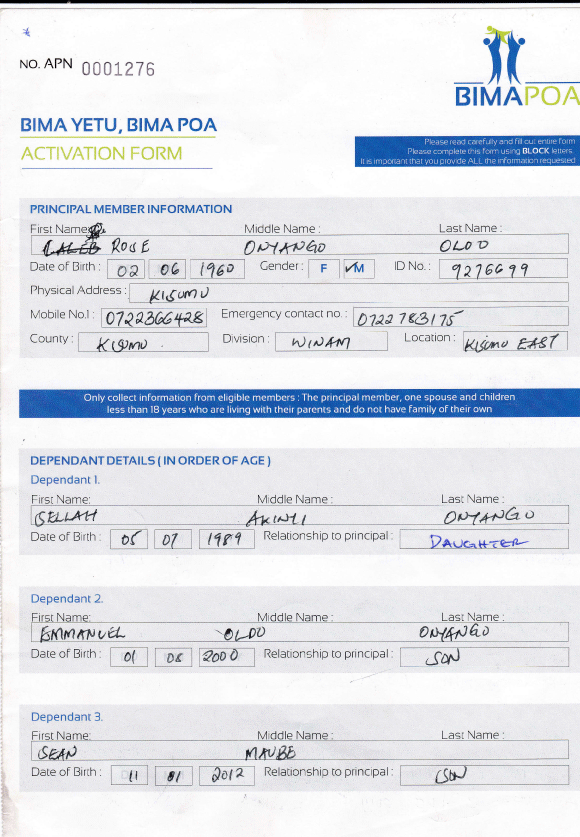 NO. APN 0001276
BIMAPOA
BIMA YETU, BIMA POA
ACTIVATION FORM
Please read carefully and fill out entire form
Please complete this form using BLOCK letters.
It is important that you provide ALL the information requested
PRINCIPAL MEMBER INFORMATION
First Name: Middle Name : Last Name :
CALEB ROSE ONYANGO OLOO
Date of Birth : 02 06 1960 Gender : F ✓M ID No. : 9276699
Physical Address : KISUMU
Mobile No.1 : 0722366428 Emergency contact no. : 0722783175
County : KISUMU Division : WINAM Location : KISUMU EAST
Only collect information from eligible members : The principal member, one spouse and children
less than 18 years who are living with their parents and do not have family of their own
DEPENDANT DETAILS ( IN ORDER OF AGE )
Dependant 1.
First Name: Middle Name : Last Name :
SELLAH AKINYI ONYANGO
Date of Birth : 05 07 1989 Relationship to principal : DAUGHTER
Dependant 2.
First Name: Middle Name : Last Name :
EMMANUEL OLOO ONYANGO
Date of Birth : 01 08 2000 Relationship to principal : SON
Dependant 3.
First Name: Middle Name : Last Name :
SEAN MAUBE
Date of Birth : 11 01 2012 Relationship to principal : SON